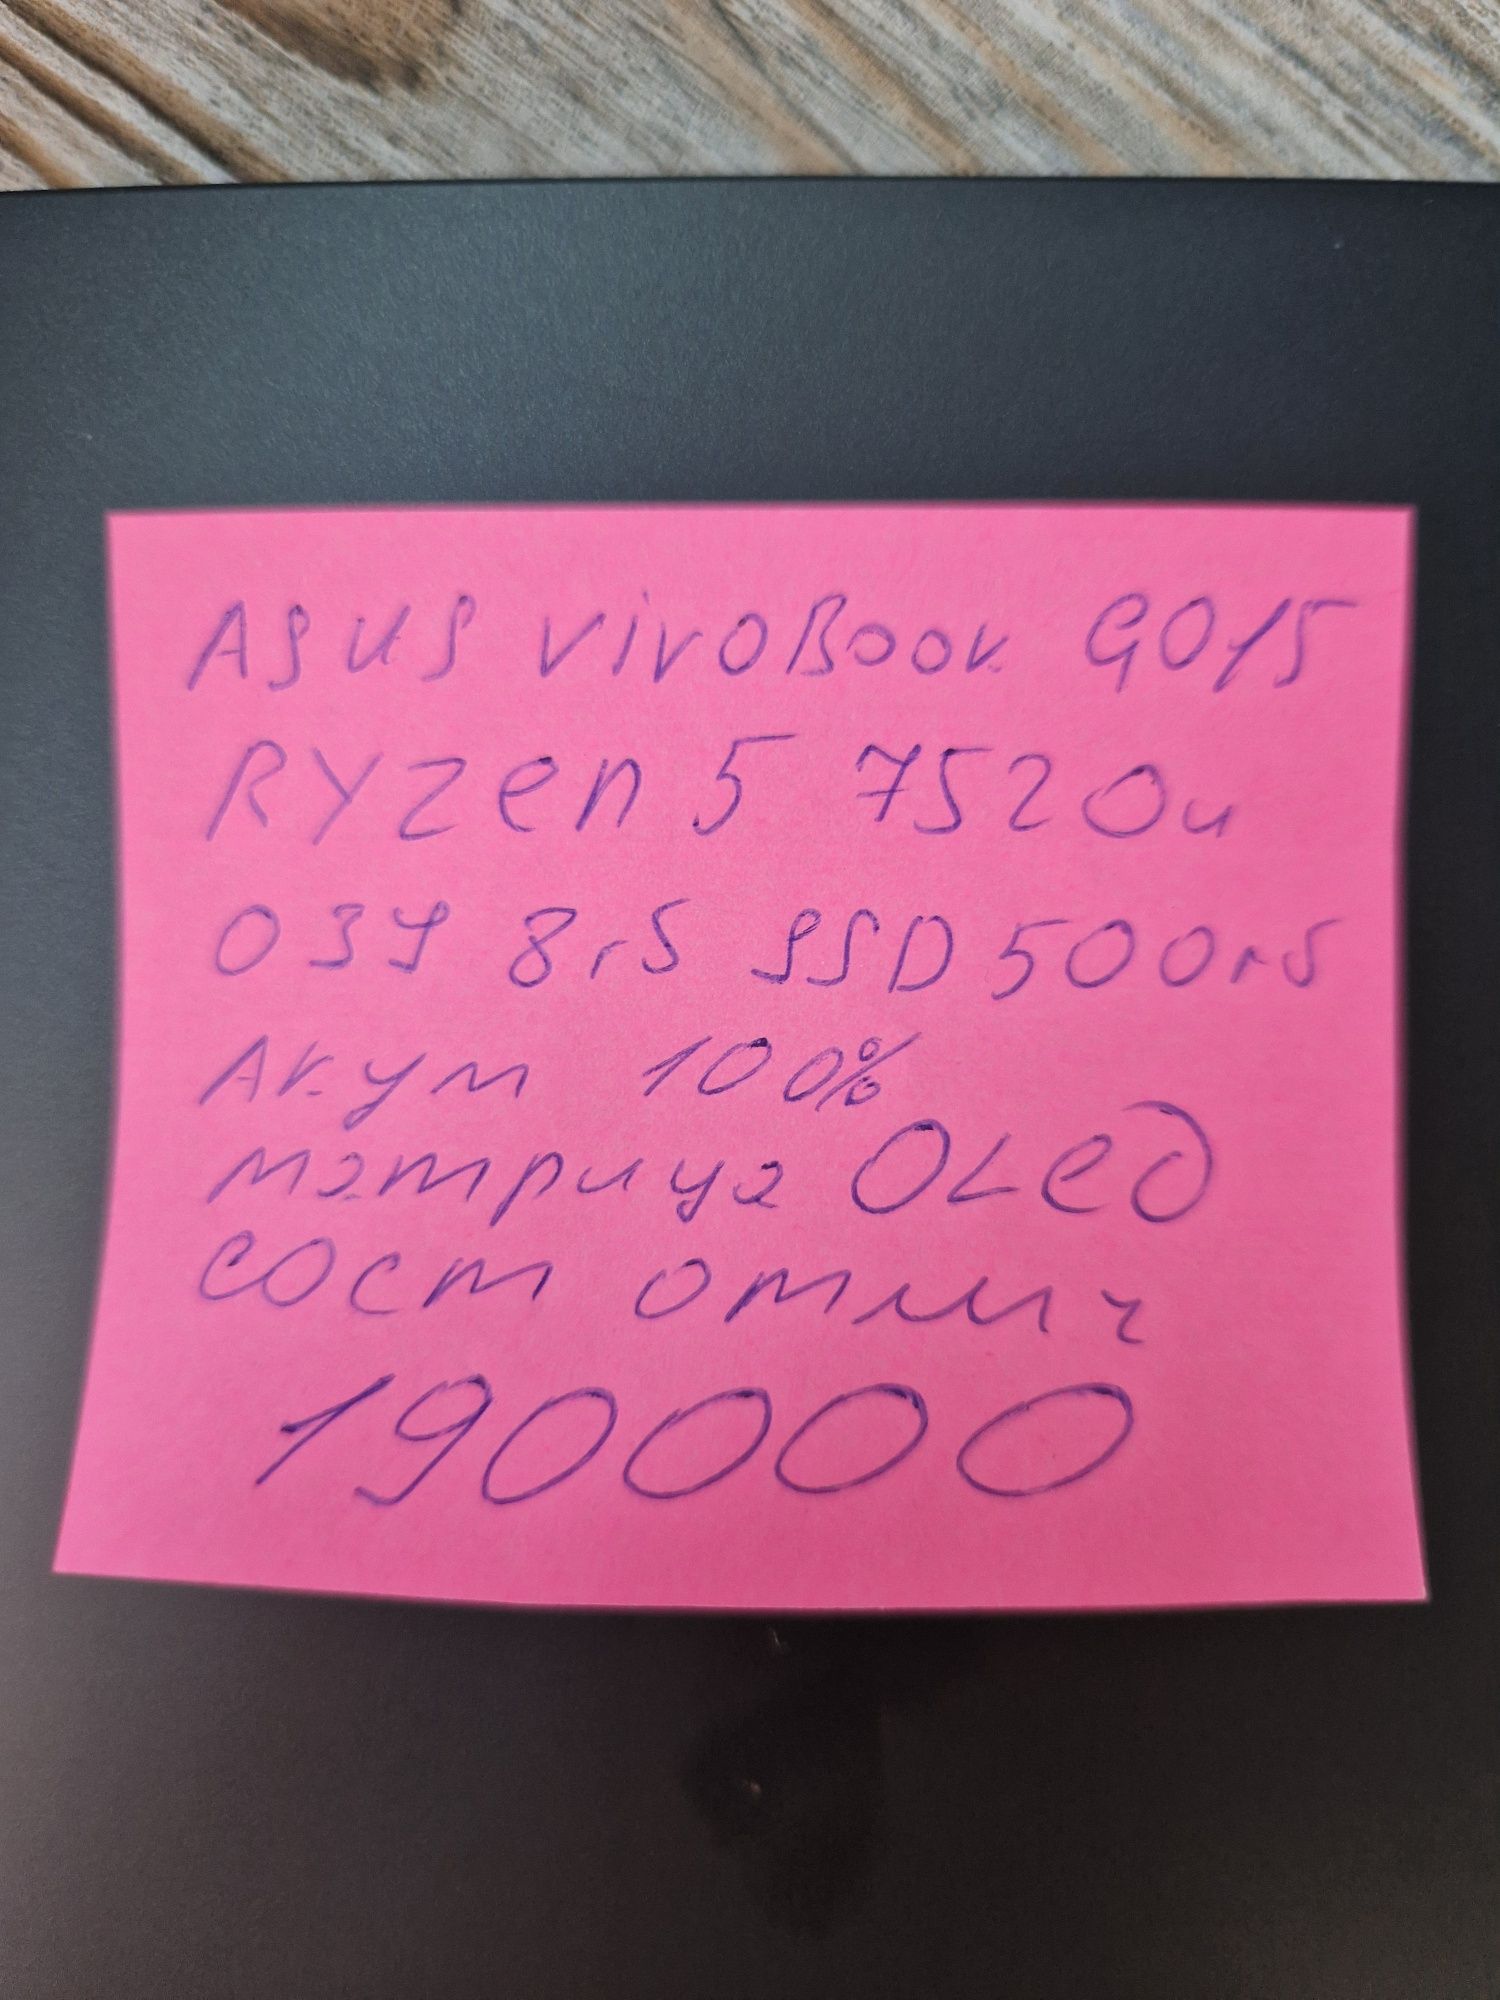 ASUS VivoBook GO15
RYZen 5 7520u
ОЗУ 8гб SSD 500гб
Акум 100%
матрица OLed
сост отлич
190000